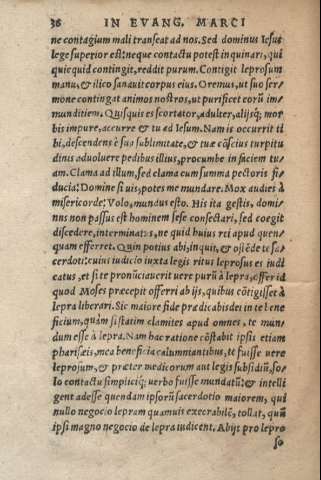 36 IN EVANG. MARCI
ne contagium mali transeat ad nos. Sed dominus Iesus
lege superior est: neque contactu potest inquinari, qui
quicquid contingit, reddit purum. Contigit leprosum
manu, & ilico sanauit corpus eius. Oremus, ut suo ser-
mone contingat animos nostros, ut purificet eorū im-
munditiem. Quisquis es scortator, adulter, alijsq; mor
bis impure, accurre & tu ad Iesum. Nam is occurrit ti
bi, descendens è sua sublimitate, & tuæ cōscius turpitu
dinis aduoluere pedibus illius, procumbe in faciem tu-
am. Clama ad illum, sed clama cum summa pectoris fi-
ducia: Domine si uis, potes me mundare. Mox audies à
misericorde: Volo, mundus esto. His ita gestis, domi-
nus non passus est hominem sese consectari, sed coegit
discedere, interminatus, ne quid huius rei apud quen-
quam efferret. Quin potius abi, inquit, & ostēde te sa-
cerdoti: cuius iudicio iuxta legis ritus leprosus es iudi
catus, et si te pronūciauerit uere purū à lepra, offer id
quod Moses præcepit offerri ab ijs, quibus cōtigisset à
lepra liberari. Sic maiore fide prædicabis dei in te bene
ficium, quàm si statim clamites apud omnes, te mun-
dum esse à lepra. Nam hac ratione cōstabit ipsis etiam
pharisæis, mea beneficia calumniantibus, te fuisse uere
leprosum, & præter medicorum aut legis subsidiū, so-
lo contactu simpliciq; uerbo fuisse mundatū: & intelli
gent adesse quendam ipsorū sacerdotio maiorem, qui
nullo negocio lepram quamuis execrabilē, tollat, quū
ipsi magno negocio de lepra iudicent. Abijt pro lepro
so